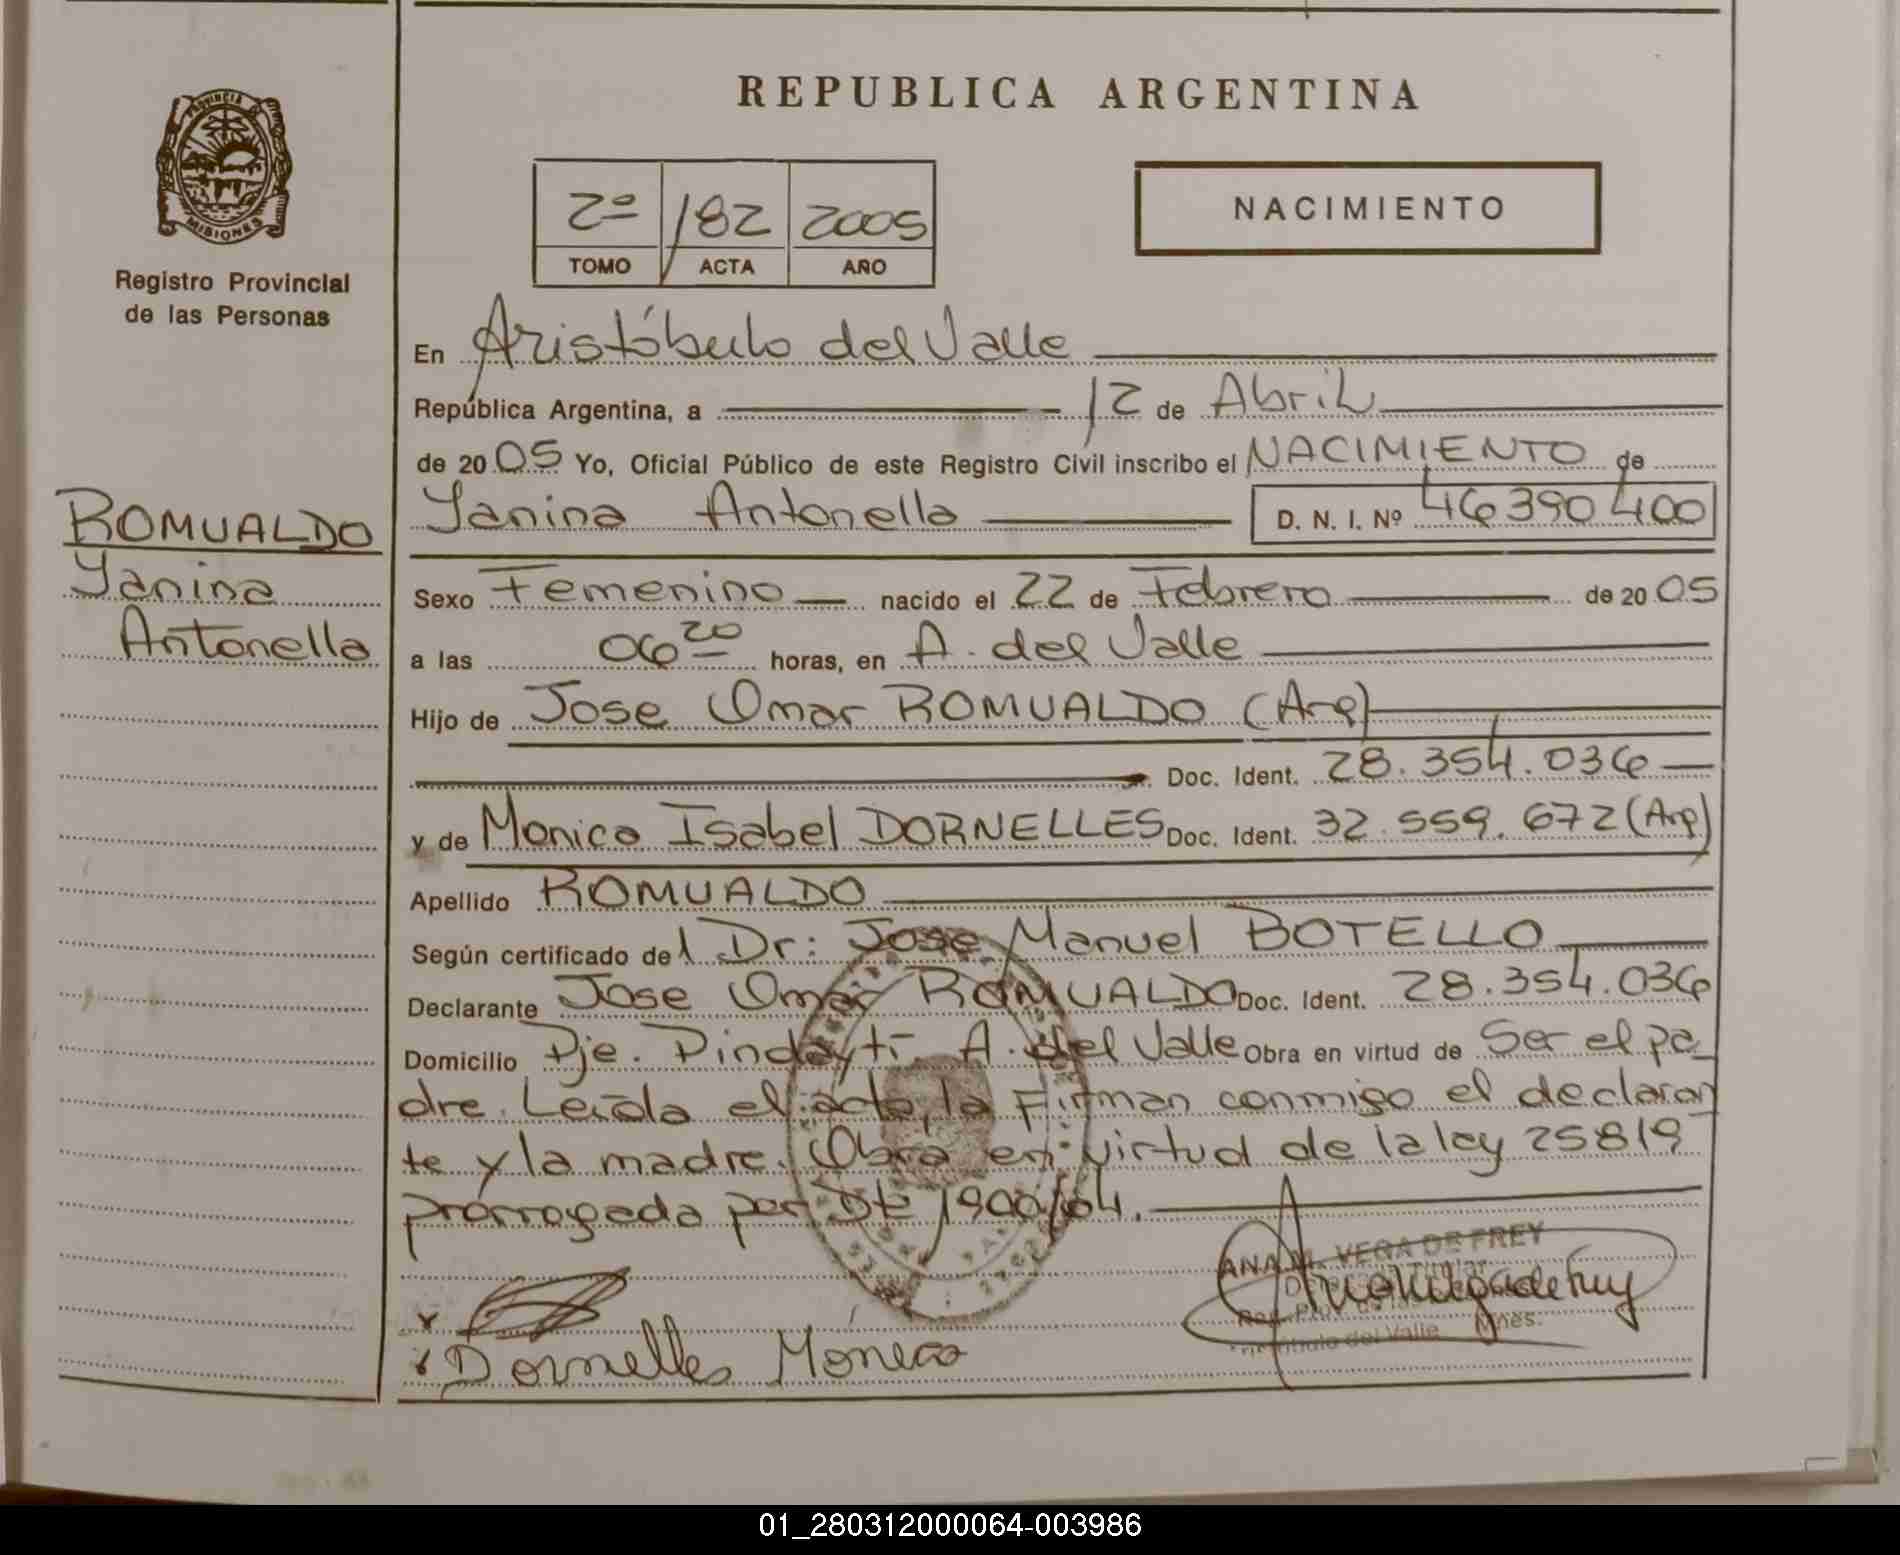 PROVINCIA
MISIONES
Registro Provincial
de las Personas
ROMUALDO
Yanina
Antonella
REPUBLICA ARGENTINA
2º 182 2005
TOMO ACTA AÑO
NACIMIENTO
En Aristóbulo del Valle
República Argentina, a 12 de Abril
de 2005 Yo, Oficial Público de este Registro Civil inscribo el NACIMIENTO de
Yanina Antonella D. N. I. Nº 46390400
Sexo Femenino nacido el 22 de Febrero de 2005
a las 06 20 horas, en A. del Valle
Hijo de Jose Omar ROMUALDO (Arg)
Doc. Ident. 28.354.036
y de Monica Isabel DORNELLES Doc. Ident. 32.559.672 (Arg)
Apellido ROMUALDO
Según certificado del Dr: Jose Manuel BOTELLO
Declarante Jose Omar ROMUALDO Doc. Ident. 28.354.036
Domicilio Pje. Pindayti A. del Valle Obra en virtud de Ser el pa
dre. Leída el acta, la Firman conmigo el declaran
te y la madre. Obra en virtud de la ley 25819
prorrogada por Dte 1900/04.
ANA M. VEGA DE FREY
Reg. Prov. de las
del Valle Mnes.
x
x Dornelles Monica
01_280312000064-003986